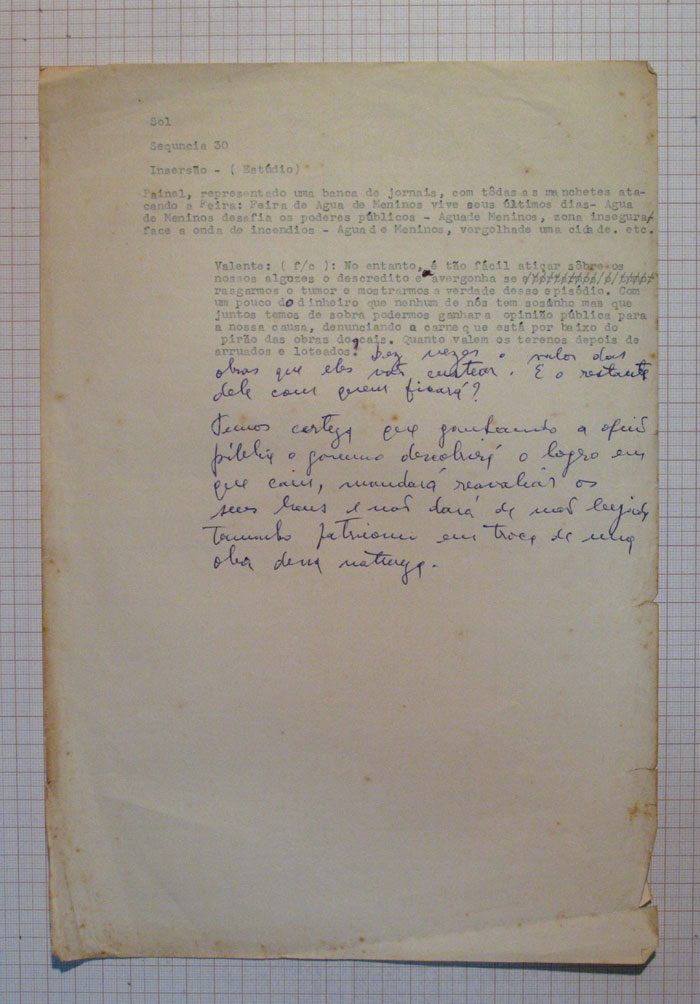 Sol
Sequncia 30
Insersão - ( Estúdio)
Painel, representado uma banca de jornais, com tôdas as manchetes ata-
cando a Feira: Feira de Agua de Meninos vive seus últimos dias- Agua
de Meninos desafia os poderes públicos - Aguade Meninos, zona insegura/
face a onda de incendios - Aguad e Meninos, vergolhade uma cidade. etc.
Valente: ( f/c ): No entanto, é tão fácil atiçar sôbre os
nossos algozes o descredito e a vergonha se
rasgarmos o tumor e mostrarmos a verdade desse episódio. Com
um pouco do dinheiro que nenhum de nós tem sosinho mas que
juntos temos de sobra podermos ganhar a opinião pública para
a nossa causa, denunciando a carne que está por baixo do
pirão das obras do cais. Quanto valem os terenos depois de
arruados e loteados? Dez vezes o valor das
obras que eles vão custear. E o restante
dele com quem ficará?
Temos certeza que ganhando a opiniã
pública o governo descobrirá o logro em
que caiu, mandará reavaliar os
seus bens e não dará de mão beijada
tamanho patrimoni em troca de uma
obra dessa natureza.